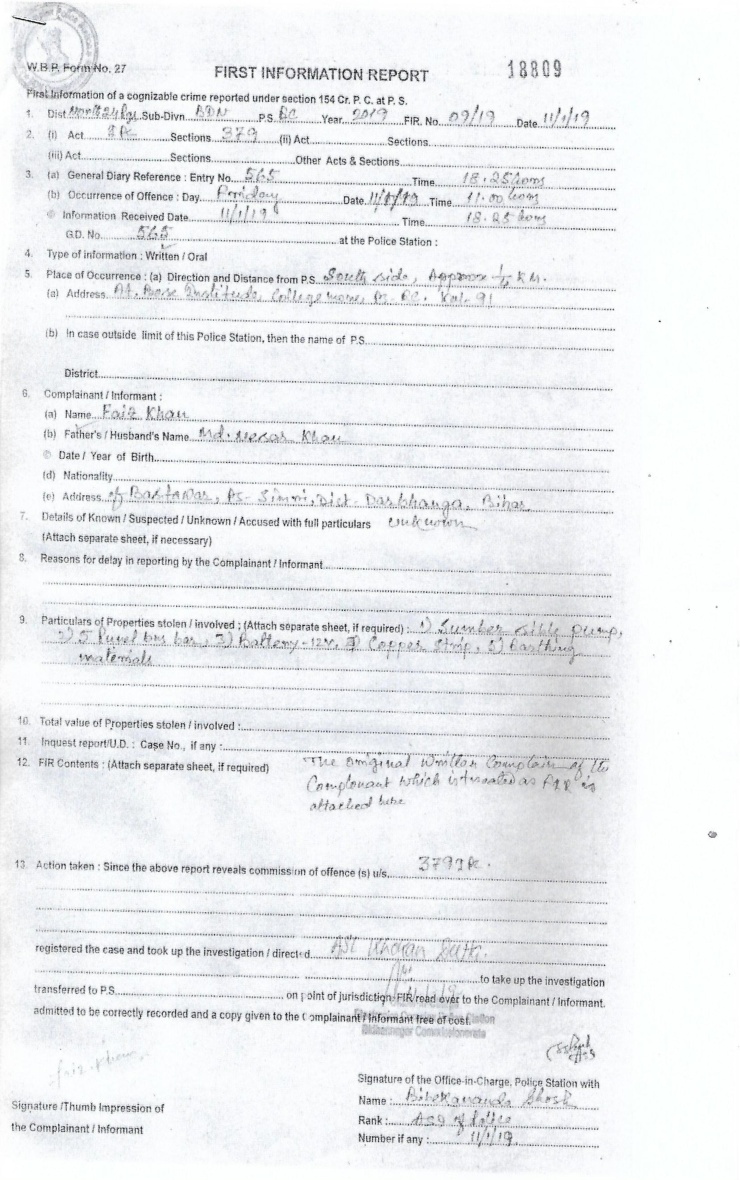 W.B.P. Form No. 27
FIRST INFORMATION REPORT
18809
First Information of a cognizable crime reported under section 154 Cr. P. C. at P. S.
1. Dist. North 24 Pgs. Sub-Divn. BDN P.S. BC Year 2019 FIR. No. 09/19 Date 11/1/19
2. (i) Act Sections 379 (ii) Act Sections
(iii) Act Sections Other Acts & Sections
3. (a) General Diary Reference : Entry No. 565 Time 18.25 hours
(b) Occurrence of Offence : Day Friday Date 11/1/19 Time 11.00 hours
Information Received Date 11/1/19 Time 18.25 hours
G.D. No. 565 at the Police Station :
4. Type of information : Written / Oral
5. Place of Occurrence : (a) Direction and Distance from P.S. South side, Approx 1/2 KM.
(a) Address At. Bose Institute, College more, Ps. BC. Kol-91
(b) In case outside limit of this Police Station, then the name of P.S.
District
6. Complainant / Informant :
(a) Name Faiz Khan
(b) Father's / Husband's Name Md. Khan
Date / Year of Birth
(d) Nationality
(e) Address of Ps- Simri, Dist- Darbhanga, Bihar
7. Details of Known / Suspected / Unknown / Accused with full particulars unknown
(Attach separate sheet, if necessary)
8. Reasons for delay in reporting by the Complainant / Informant
9. Particulars of Properties stolen / involved ; (Attach separate sheet, if required) : 1) Sumber sible pump,
2) 5 Panel bus bar, 3) Battery-12v, 4) Copper strip, 5) Earthing
materials
10. Total value of Properties stolen / involved :
11. Inquest report/U.D. : Case No., if any :
12. FIR Contents : (Attach separate sheet, if required) The original written Complain of the
Complonant which is treated as FIR is
attached here
13. Action taken : Since the above report reveals commission of offence (s) u/s 379 IPC.
registered the case and took up the investigation / directed ASI Dutta
to take up the investigation
transferred to P.S. on point of jurisdiction. FIR read over to the Complainant / Informant.
admitted to be correctly recorded and a copy given to the Complainant / Informant free of cost.
Faiz Khan
Signature of the Office-in-Charge, Police Station with
Signature /Thumb Impression of
Name : Bibekananda Ghosh
the Complainant / Informant
Rank : of Police
Number if any : 11/1/19